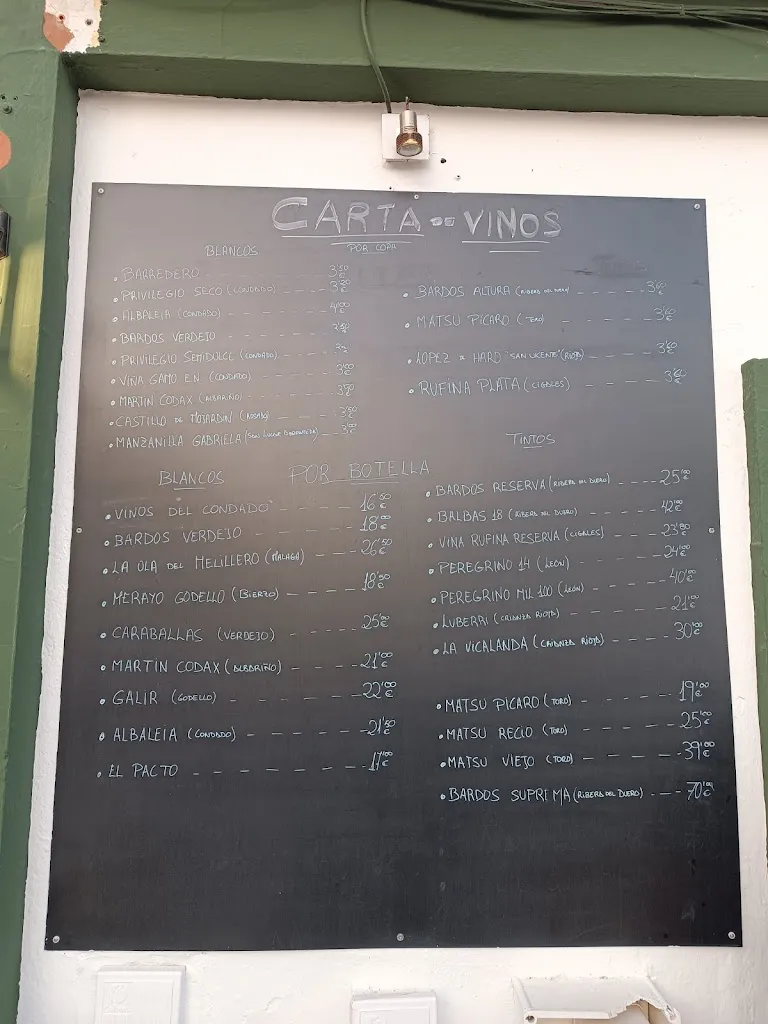 CARTA DE VINOS
POR COPA
BLANCOS
BARREDERO - - - 3'50 €
PRIVILEGIO SECO (CONDADO) - - - 3'20 €
ALBALEIA (CONDADO) - - - 4'00 €
BARDOS VERDEJO - - - 3'50 €
PRIVILEGIO SEMIDULCE (CONDADO) - - -
VIÑA GAMO EN (CONDADO) - - - 3'00 €
MARTIN CODAX (ALBARIÑO) - - - 3'50 €
CASTILLO DE MONJARDIN (ROSADO) - - - 3'50 €
MANZANILLA GABRIELA - - - 3'00 €
BARDOS ALTURA (RIBERA DEL DUERO) - - - 3'60 €
MATSU PICARO (TORO) - - - 3'60 €
LOPEZ DE HARO "SAN VICENTE" (RIOJA) - - - 3'60 €
RUFINA PLATA (CIGALES) - - - 3'60 €
POR BOTELLA
BLANCOS
VINOS DEL CONDADO - - - 16'50 €
BARDOS VERDEJO - - - 18'00 €
LA OLA DEL MELILLERO (MALAGA) - - - 26'50 €
MERAYO GODELLO (BIERZO) - - - 18'50 €
CARABALLAS (VERDEJO) - - - 25'00 €
MARTIN CODAX (ALBARIÑO) - - - 21'00 €
GALIR (GODELLO) - - - 22'00 €
ALBALEIA (CONDADO) - - - 21'50 €
EL PACTO - - - 17'00 €
TINTOS
BARDOS RESERVA (RIBERA DEL DUERO) - - - 25'00 €
BALBAS 18 (RIBERA DEL DUERO) - - - 42'00 €
VIÑA RUFINA RESERVA (CIGALES) - - - 23'80 €
PEREGRINO 14 (LEON) - - - 24'00 €
PEREGRINO MIL 100 (LEON) - - - 40'00 €
LUBERRI (CRIANZA RIOJA) - - - 21'00 €
LA VICALANDA (CRIANZA RIOJA) - - - 30'00 €
MATSU PICARO (TORO) - - - 19'00 €
MATSU RECIO (TORO) - - - 25'00 €
MATSU VIEJO (TORO) - - - 39'00 €
BARDOS SUPREMA (RIBERA DEL DUERO) - - - 70'00 €